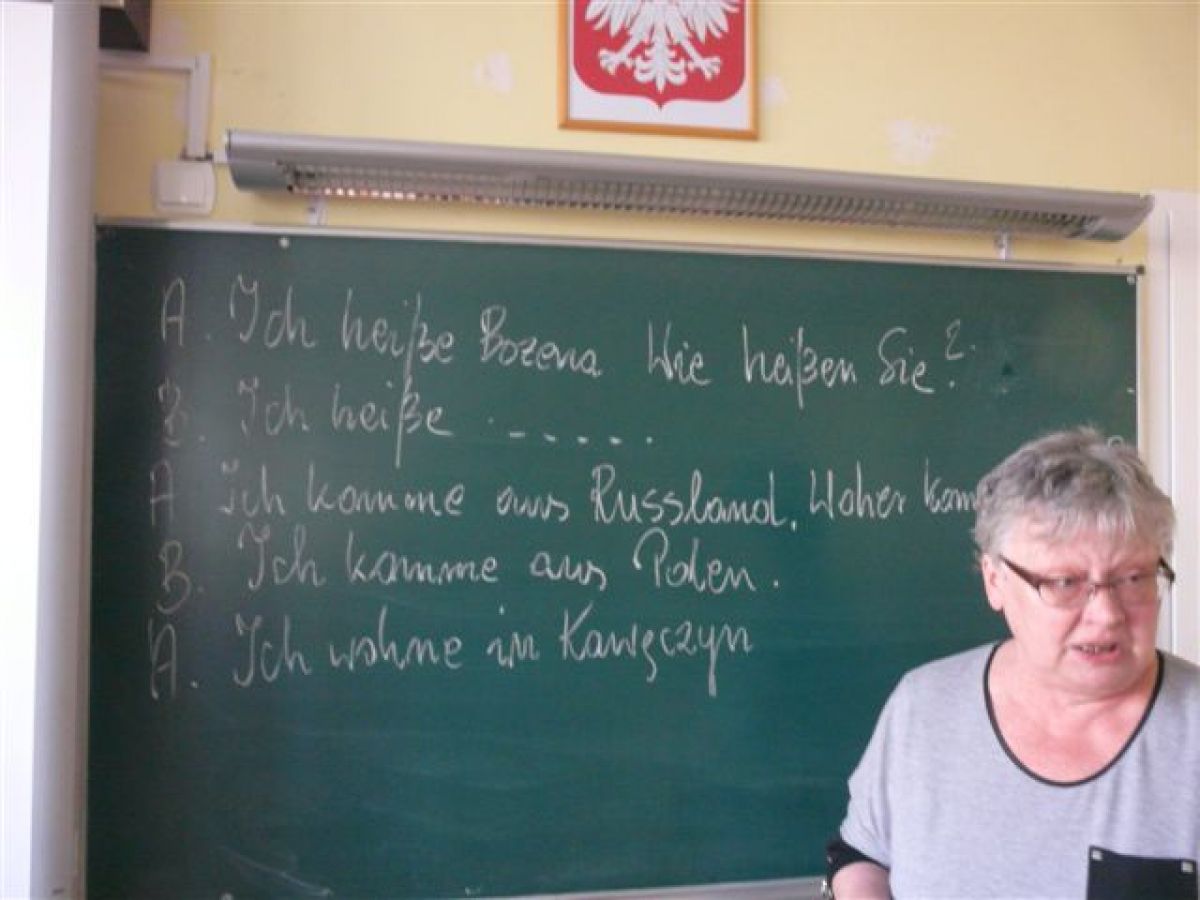 A. Ich heiße Bozena Wie heißen Sie?
B. Ich heiße . - - - - .
A Ich komme aus Russland. Woher kom
B. Ich komme aus Polen.
A. Ich wohne in Kawęczyn